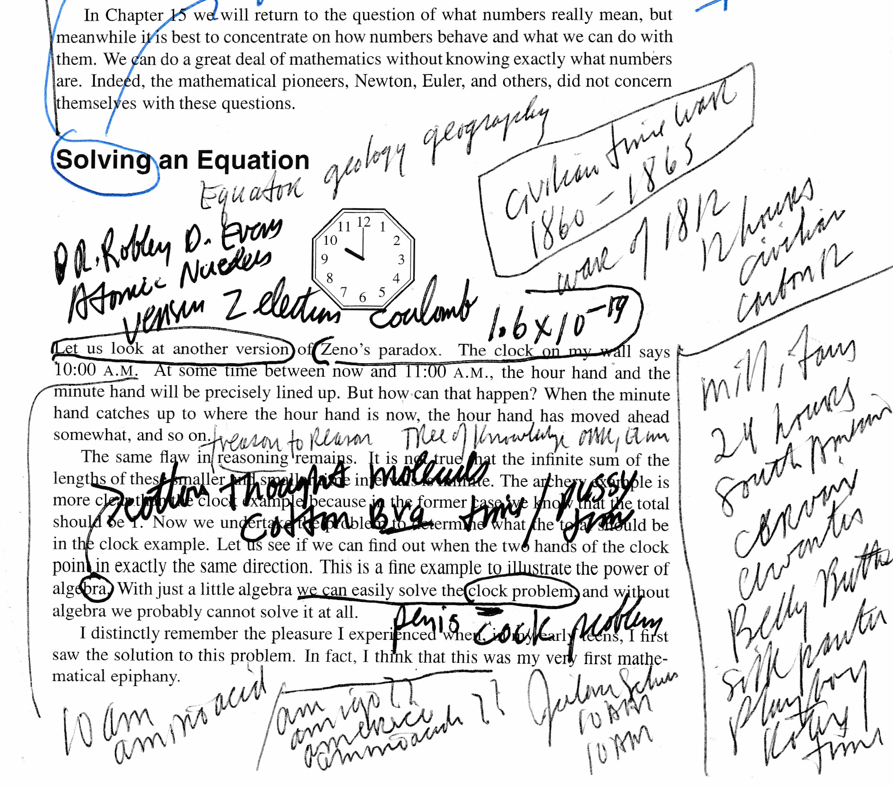 In Chapter 15 we will return to the question of what numbers really mean, but
meanwhile it is best to concentrate on how numbers behave and what we can do with
them. We can do a great deal of mathematics without knowing exactly what numbers
are. Indeed, the mathematical pioneers, Newton, Euler, and others, did not concern
themselves with these questions.
Solving an Equation
Equator geology geography
civilian time war
1860 - 1865
war of 1812
12 hours
civilian
carbon 12
DR. Robley D. Evans
Atomic Nucleus
version Z electron coulomb
1.6 x 10^-19
11 12 1
10 2
9 3
8 4
7 6 5
Let us look at another version of Zeno's paradox. The clock on my wall says
10:00 A.M. At some time between now and 11:00 A.M., the hour hand and the
minute hand will be precisely lined up. But how can that happen? When the minute
hand catches up to where the hour hand is now, the hour hand has moved ahead
somewhat, and so on.
treason to Reason Tree of Knowledge
The same flaw in reasoning remains. It is not true that the infinite sum of the
lengths of these smaller and smaller time intervals is infinite. The archery example is
more clear than the clock example because in the former case we know that the total
should be 1. Now we undertake the problem to determine what the total should be
in the clock example. Let us see if we can find out when the two hands of the clock
point in exactly the same direction. This is a fine example to illustrate the power of
algebra. With just a little algebra we can easily solve the clock problem, and without
algebra we probably cannot solve it at all.
cotton Thought molecule
cotton Bra time / pussy
time
penis cock problem
I distinctly remember the pleasure I experienced when, in my early teens, I first
saw the solution to this problem. In fact, I think that this was my very first mathe-
matical epiphany.
10 am
amino acid
am
amigo ??
america
amino acids ??
10 AM
10 AM
24 hours
South American
Belly Button
silk panties
Playboy
time